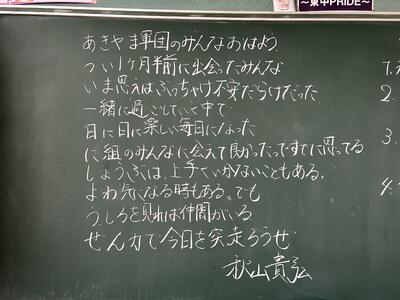 ～東中PRIDE～
あきやま軍団のみんなおはよう
つい1ヶ月半前に出会ったみんな
いま思えばぶっちゃけ不安だらけだった
一緒に過ごしていく中で
日に日に楽しい毎日になった
に組のみんなに会えて良かったってすでに思ってる
しょうぶは、上手くいかないこともある。
よわ気になる時もある。でも
うしろを見れば仲間がいる
ぜん力で今日を突走ろうぜ
秋山貴弘
1.
2.
3.
4.